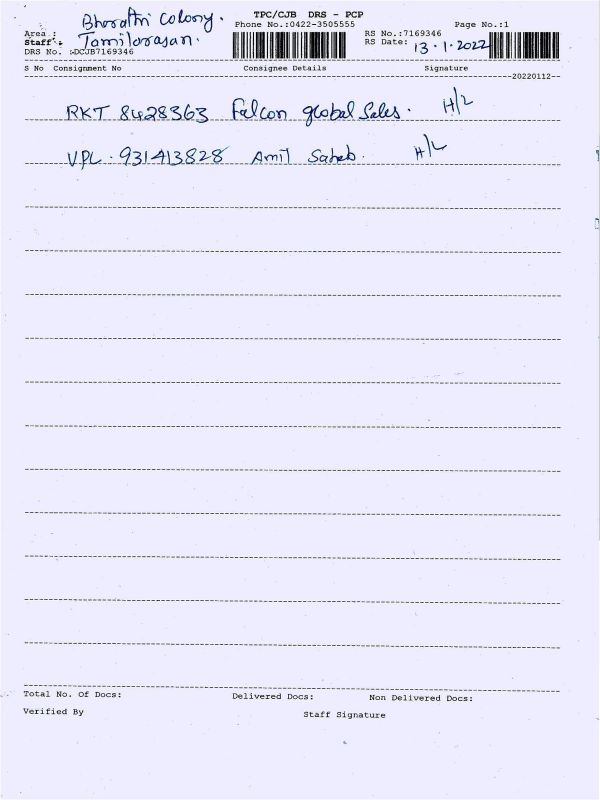 TPC/CJB DRS - PCP
Bharathi Colony.
Phone No.:0422-3505555
Page No.:1
Area :
RS No.:7169346
Staff :
Tamilarasan.
RS Date: 13.1.2022
DRS No. :DCJB7169346
S No Consignment No Consignee Details Signature
--20220112--
RKT 8428363 Falcon global Sales. H/L
VPL. 931413828 Amil Saheb. H/L
Total No. Of Docs: Delivered Docs: Non Delivered Docs:
Verified By Staff Signature